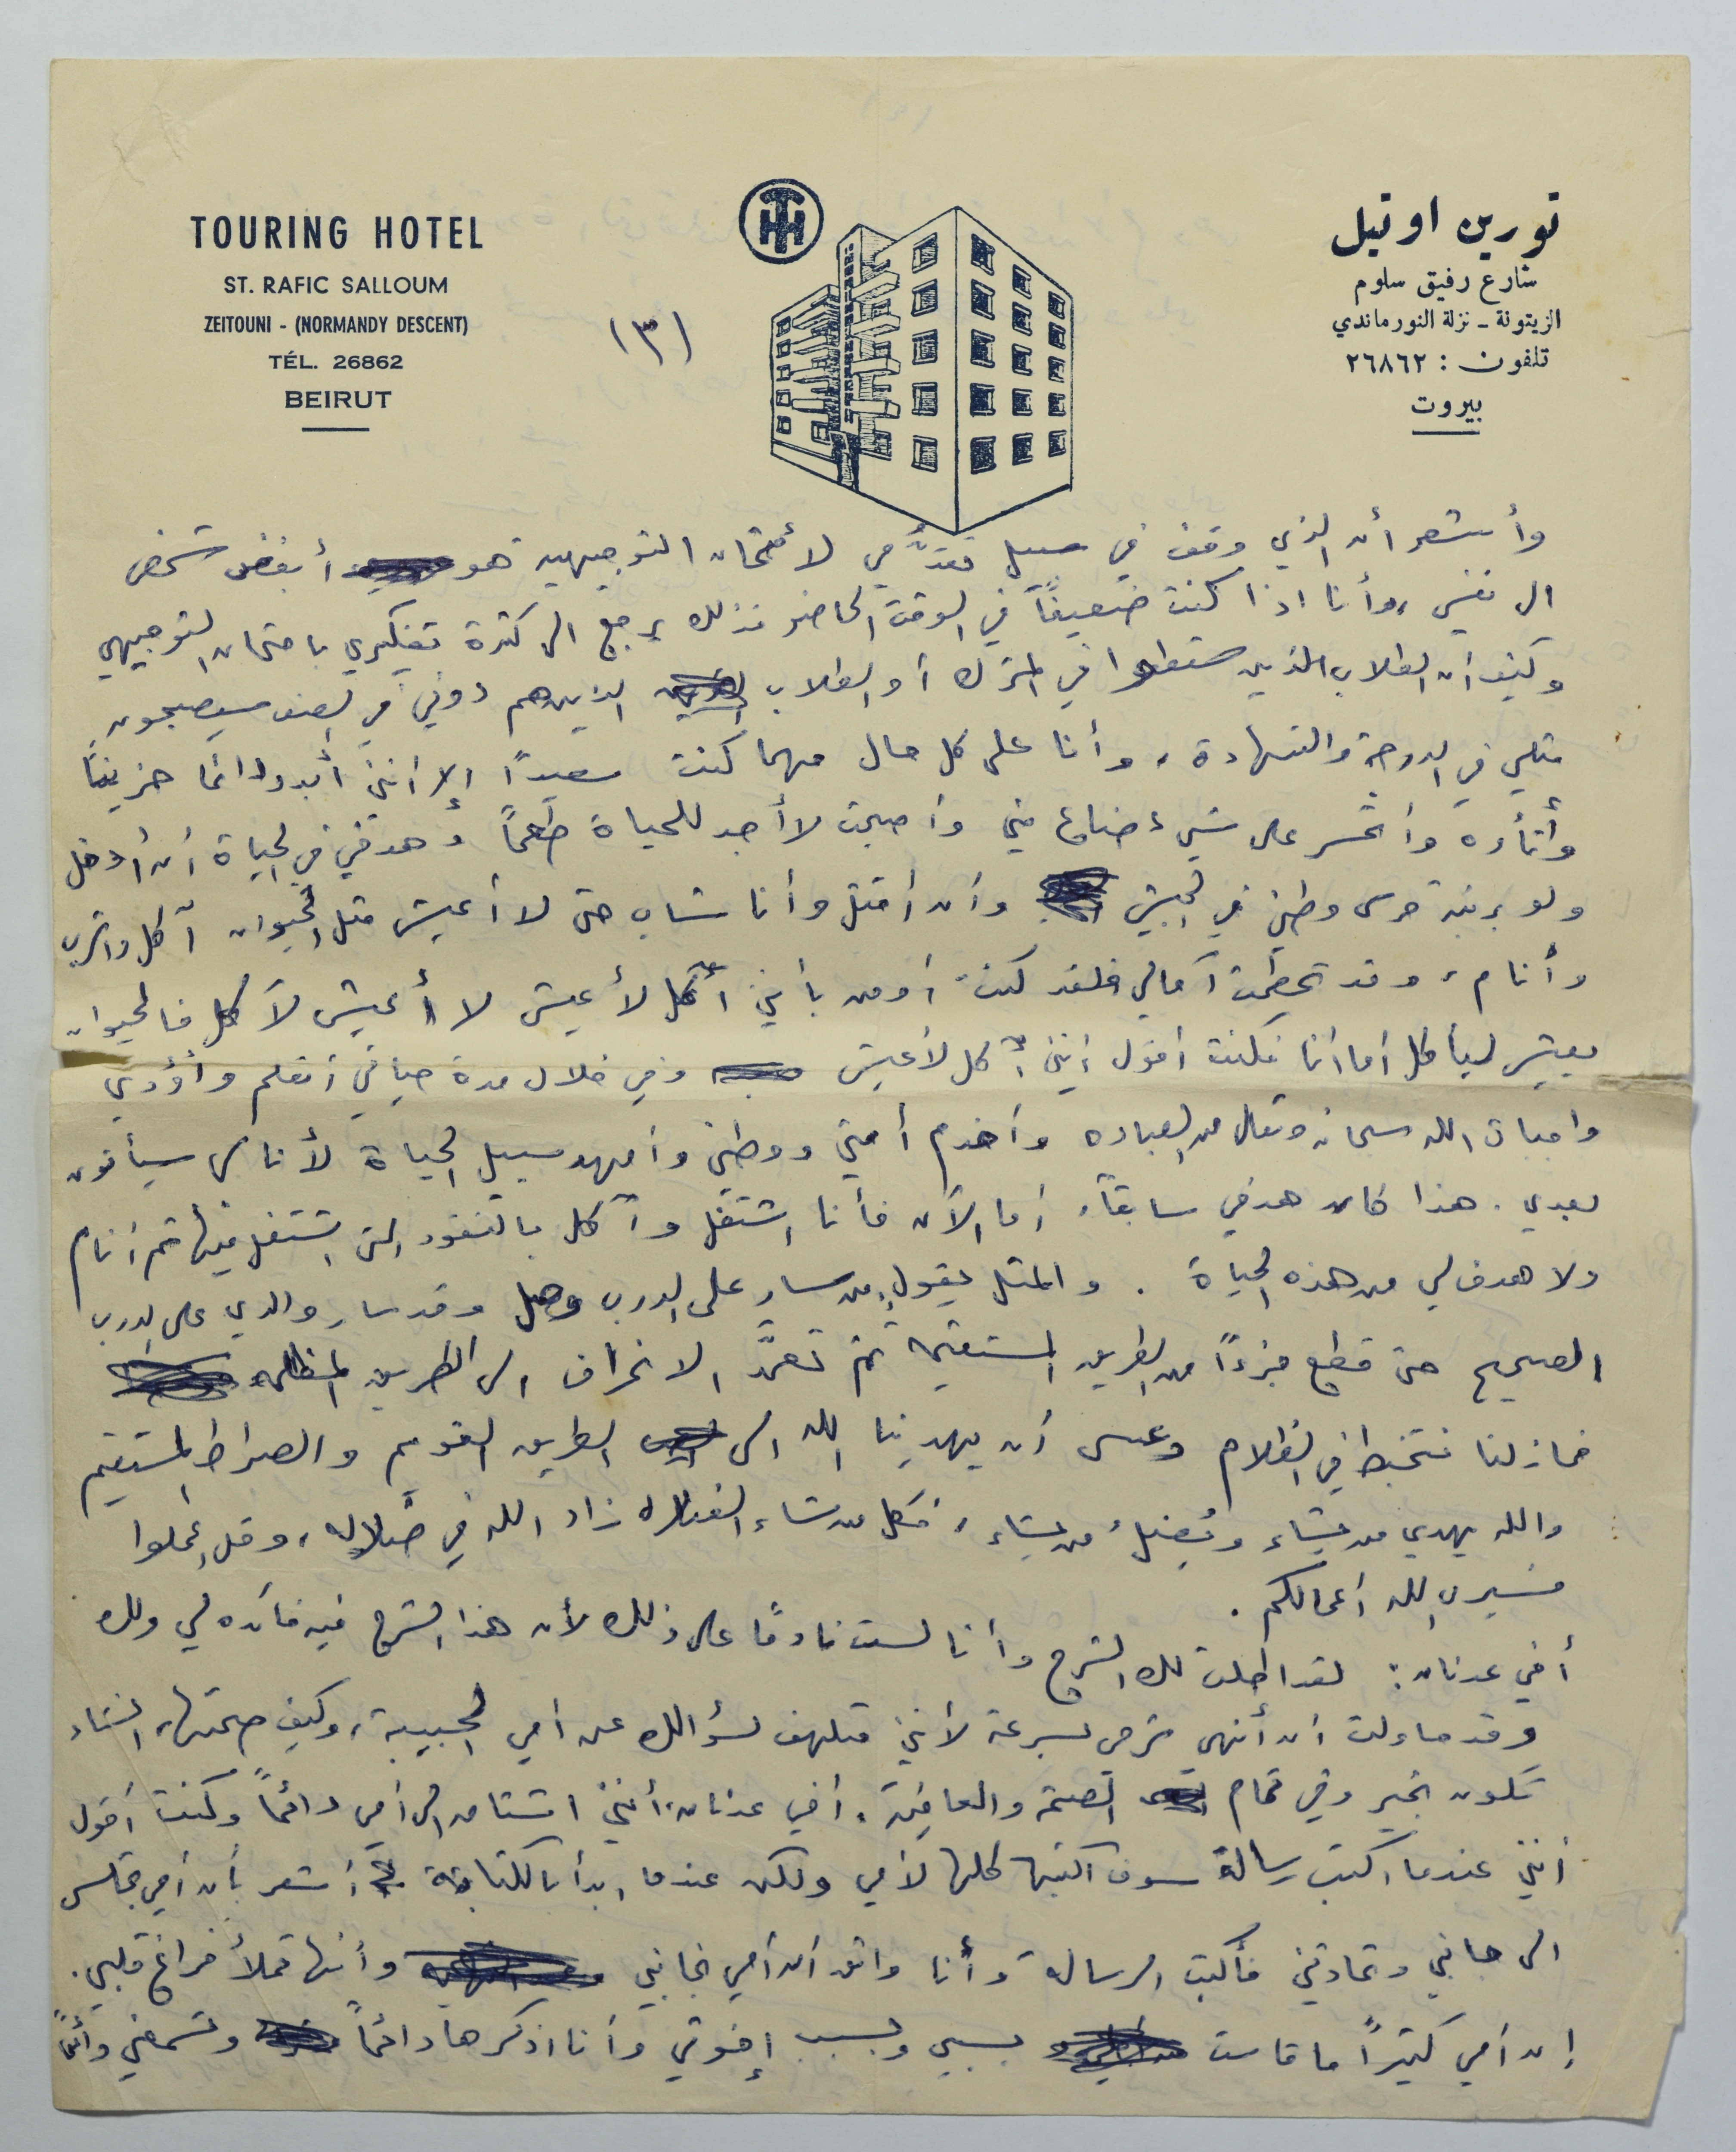 TOURING HOTEL
ST. RAFIC SALLOUM
ZEITOUNI - (NORMANDY DESCENT)
TÉL. 26862
BEIRUT
تورين اوتيل
شارع رفيق سلوم
الزيتونة - نزلة النورماندي
تلفون : ٢٦٨٦٢
بيروت
(٣)
وأشعر أن الذي وقف في سبيل تقدُّمي لأمتحان التوجيهيه هو أبغض شخص
الى نفسي، وأنا اذا كنت ضعيفاً في الوقت الحاضر فذلك يرجع الى كثرة تفكيري بامتحان التوجيهي
وكيف ان الطلاب الذين سقطوا في المترك أو الطلاب الذين هم دوني في الصف سيصبحون
مثلي في الدرجة والشهادة، وأنا على كل حال مهما كنت سعيداً إلا أنني أبدو دائما حزيناً
وأتأوه وأتحسر على شيء ضاع مني وأصبحت لا أجد للحياة طعماً وهدفي في الحياة أن أدخل
ولو برتبة حرس وطني في الجيش وأن أقتل وأنا شاب حتى لا أعيش مثل الحيوان آكل واشرب
وأنام، وقد تحطمت آمالي فلقد كنت أومن بأني آكل لأعيش لا أعيش لآكل فالحيوان
يعيش ليأكل أما أنا فكنت اقول إنني آكل لأعيش وفي خلال مدة حياتي أتعلم وأؤدي
واجبات الله سبحانه وتعالى من العباده وأخدم أمتي ووطني وأمهد سبيل الحياة لأناس سيأتون
بعدي. هذا كان هدفي سابقاً، أما الآن فأنا اشتغل وآكل بالنقود التي اشتغل فيها ثم أنام
ولا هدف لي من هذه الحياة . والمثل يقول، من سار على الدرب وصل وقد سار والدي على الدرب
الصحيح حتى قطع جزءاً من الطريق المستقيم ثم تعمَّد الانحراف الى الطريق المظلم
فمازلنا نتخبط في الظلام وعسى أن يهدينا الله الى الطريق القويم والصراط المستقيم
والله يهدي من يشاء ويُضلُ من يشاء، فكل من شاء الضلاله زاد الله في ضلاله، وقل اعملوا
فسيرى الله أعمالكم .
أخي عدنان: لقد اطلت لك الشرح وأنا لست نادماً على ذلك لأن هذا الشرح فيه فائده لي ولك
وقد حاولت أن أنهي شرحي بسرعة لأنني متلهف لسؤالك عن أمي الحبيبة، وكيف صحتها، انشاء
تكون بخير وفي تمام الصحة والعافية. أخي عدنان، أنني اشتاق الى أمي دائماً وكنت أقول
أنني عندما اكتب رسالة سوف اكتبها كلها لأمي ولكن عندما ابدأ بالكتابة أشعر بأن أمي تجلس
الى جانبي وتحادثني فأكتب الرسالة وأنا واثق أن أمي بجانبي وأنها تملأ فراغ قلبي.
إن أمي كثيراً ما قاست بسببي وبسبب إخوتي وأنا اذكرها دائماً وتسمعني دائماً